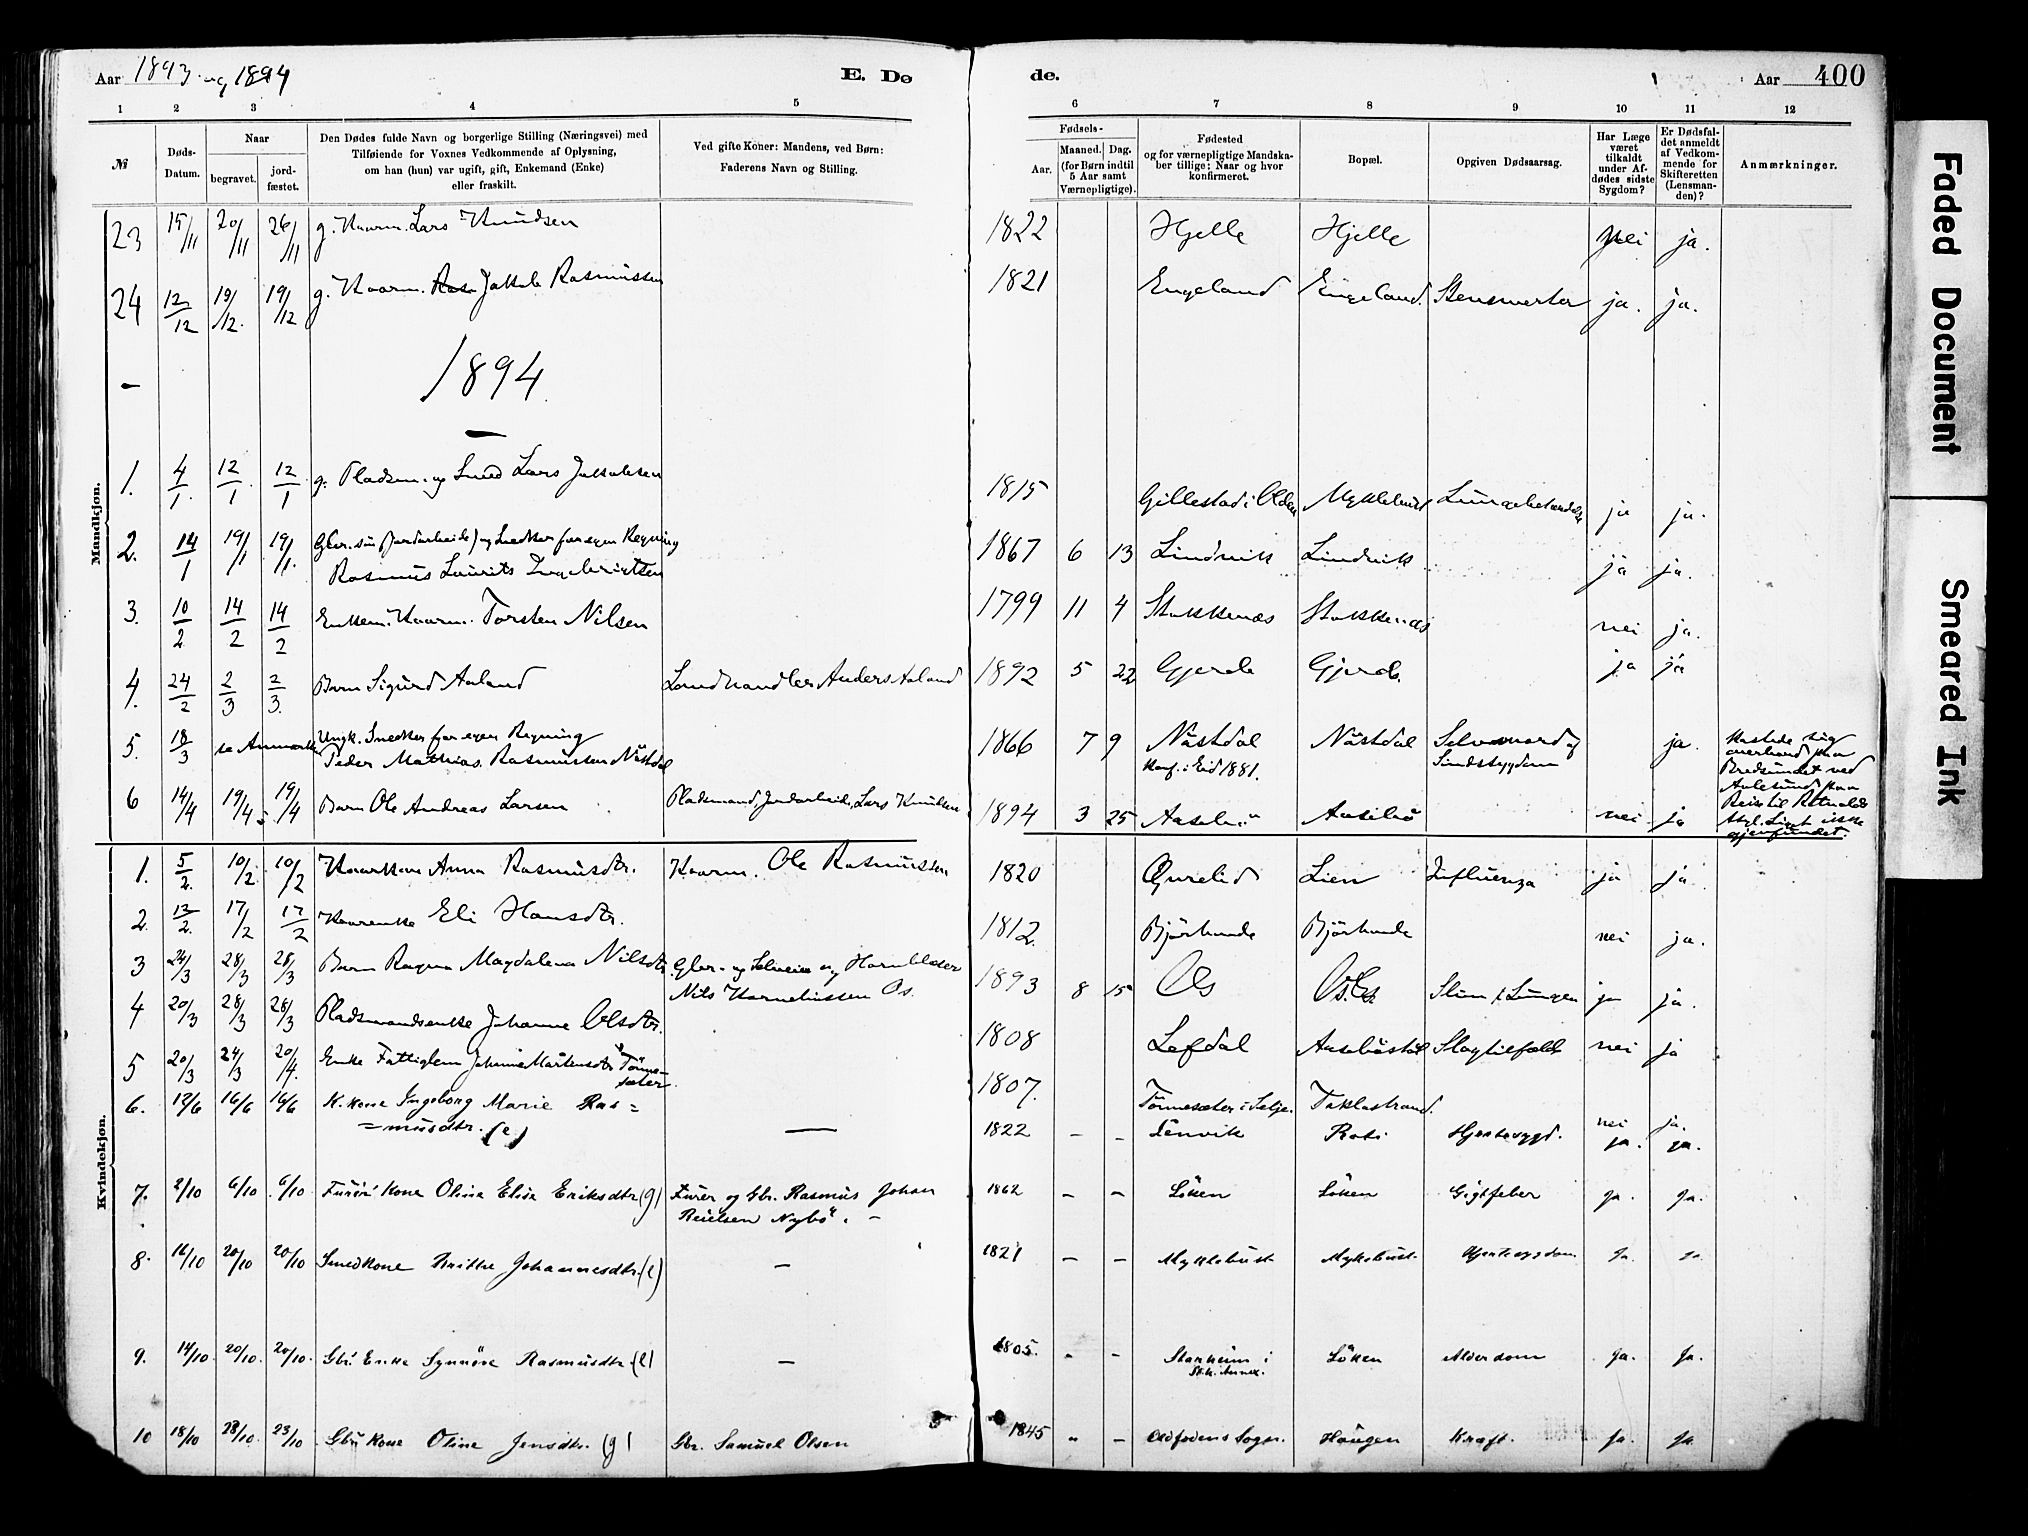 Aar 1893 og 1894
E. Dø
de.
Aar 400
1 2 3 4 5 6 7 8 9 10 11 12
№
Døds-Datum.
Naar
begravet.
jord-fæstet.
Den Dødes fulde Navn og borgerlige Stilling (Næringsvei) med
Tilføiende for Voxnes Vedkommende af Oplysning,
om han (hun) var ugift, gift, Enkemand (Enke)
eller fraskilt.
Ved gifte Koner: Mandens, ved Børn:
Faderens Navn og Stilling.
Fødsels-
Aar.
Maaned. Dag.
(for Børn indtil
5 Aar samt
Værnepligtige).
Fødested
og for værnepligtige Mandska-
ber tillige: Naar og hvor
konfirmeret.
Bopæl.
Opgiven Dødsaarsag.
Har Læge
været
tilkaldt
under Af-
dødes sidste
Sygdom?
Er Dødsfal-
det anmeldt
af Vedkom-
mende for
Skifteretten
(Lensman-
den)?
Anmærkninger.
Mandkjøn.
23 15/11 20/11 26/11 g. Kaarm. Lars Knudsen 1822 Hjelle Hjelle Nei ja.
24 12/12 19/12 19/12 g. Kaarm. Jakob Rasmussen 1821 Engeland Engeland. Stensmerter ja. ja.
— 1894
1. 4/1 12/1 12/1 g. Pladsm. og Smed Lars Jakobsen 1815 Gillestad i Olden Myklebust Lungebetændelse ja ja.
2. 14/1 19/1 19/1 Gbr. søn (jordarbeide) og Snedker for egen Regning
Rasmus Laurits Ingebrigtsen 1867 6 13 Lindvik Lindvik ja ja.
3. 10/2 14/2 14/2 Enkem. Kaarm. Torsten Nilsen 1799 11 4 Stokkenæs Stokkenæs nei ja.
4. 24/2 2/3 2/3 Barn Sigurd Aaland Landhandler Anders Aaland 1892 5 22 Gjerde Gjerde. ja ja
5. 18/3 se Anmærkn. Ungk. Snedker for egen Regning
Peder Mathias Rasmussen Nåstdal 1866 7 9 Nåstdal Nåstdal Selvmord af ja.
Konf. i Eid 1881. Sindssygdom
Kastede sig
overbord fra
Bredsundet ved
Aalesund paa
Reise til Rotvolds
Asyl. Liget ikke
gjenfundet.
6 14/4 19/4 19/4 Barn Ole Andreas Larsen Pladsmand, Jordarbeide, Lars Knudsen 1894 3 25 Aasebø Aasebø nei ja
Kvindekjøn.
1. 5/2 10/2 10/2 Kaarkone Anna Rasmusdtr. Kaarm. Ole Rasmussen 1820 Øvrelid Lien Influenza ja ja
2. 12/2 17/2 17/2 Kaarenke Eli Hansdtr. 1812 Bjørhovde Bjørhovde nei ja.
3 24/3 28/3 28/3 Barn Ragna Magdalena Nilsdtr. Gbr- og Selveier og Hornblæser
Nils Korneliussen Os. 1893 8 15 Os Os. Slim i Lungen ja ja.
4 20/3 28/3 28/3 Pladsmandsenke Johanne Olsdtr. 1808 Lefdal Aasebøstøl Slagtilfælde nei ja
5 20/3 24/3 20/4. Enke Fattiglem Johanne Mårtensdtr Tønne-
sæter. 1807. Tønnesæter i Selje. Taklostrand. nei ja.
6. 12/6 16/6 16/6 K. kone Ingeborg Marie Ras=
=musdtr. (e) — 1822 – – Lenvik Roti Hjertesygd. ja. ja.
7. 2/10 6/10 6/10 Furér Kone Oline Elise Eriksdtr (g) Furer og Gbr. Rasmus Johan
Reielsen Nybø. – 1862 – – Løken Løken Gigtfeber ja. ja.
8. 16/10 20/10 20/10 Smedkone Brithe Johannesdtr. (e) – 1821 – – Myklebust Myklebust Hjertesygdom ja. ja.
9. 14/10 20/10. 20/10. Gbr Enke Synnøve Rasmusdtr (e) – 1805. – – Starheim i
St.h. Annex. Løken Alderdom ja. Ja.
10 18/10 23/10. 23/10 Gbr Kone Oline Jensdtr. (g) Gbr. Samuel Olsen 1845 – – Oldfedens Sogn. Haugen Kræft. Ja. Ja.
Faded Document
Smeared Ink